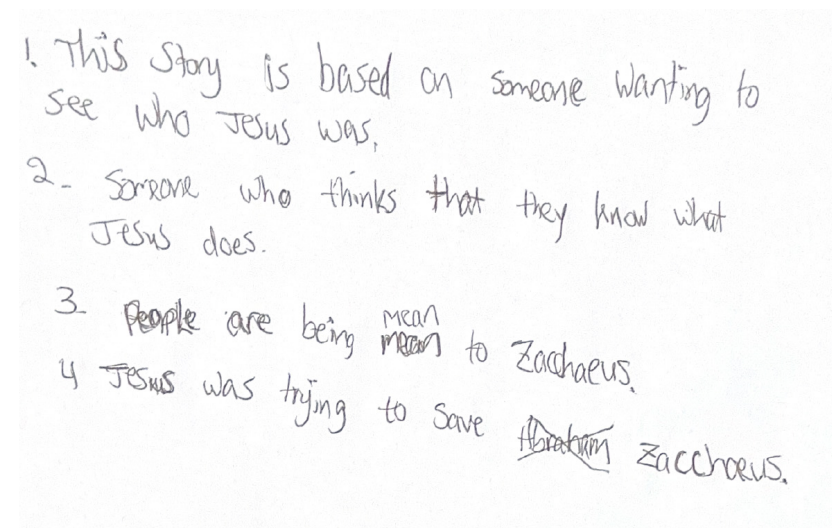 1. This Story is based on someone wanting to
see who Jesus was.
2- Someone who thinks that they know what
Jesus does.
3- People are being mean
mean to Zachaeus.
4 Jesus was trying to save Abraham Zacchaeus.